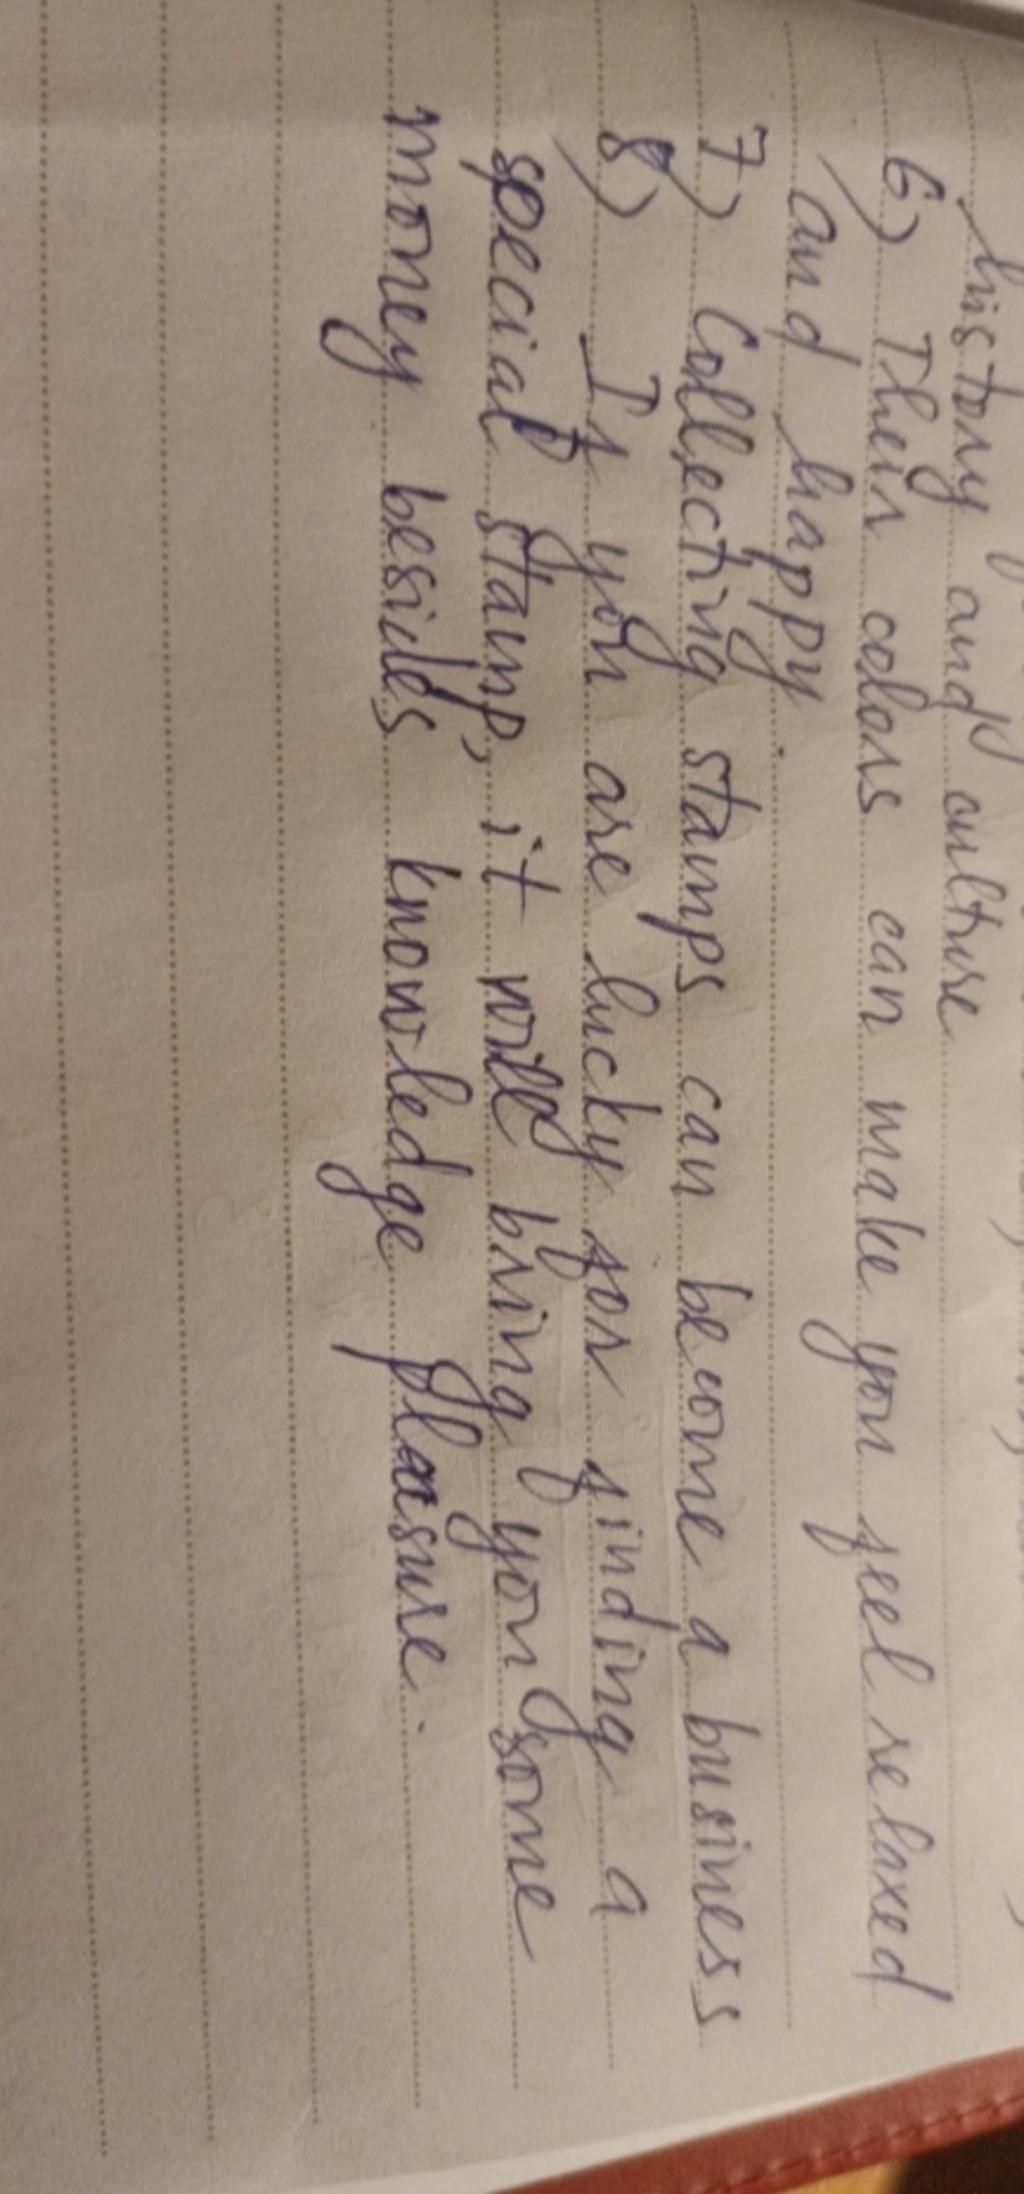 history and culture
6) Their colors can make you feel relaxed
and happy.
7) Collecting stamps can become a business
8) If you are lucky for finding a
special stamp, it will bring you some
money besides knowledge pleasure.